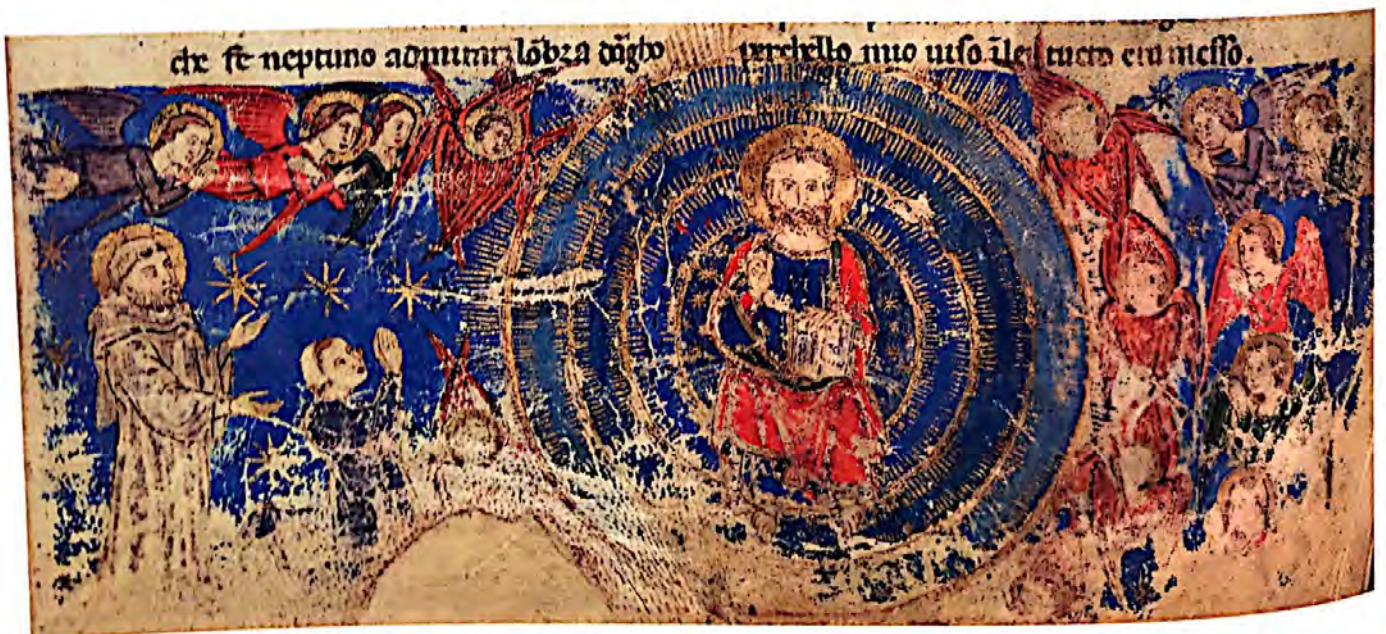 che fe neptuno admirar lōbra dargho
perchello mio uiso īlei tucto era messo.